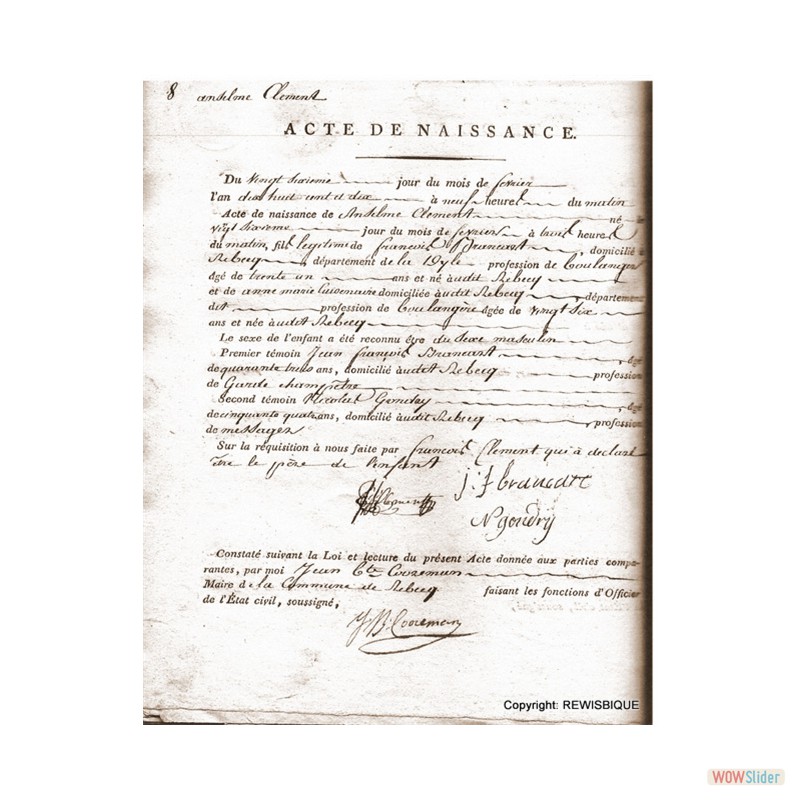 8 anselme Clement
ACTE DE NAISSANCE.
Du vingt sixieme jour du mois de fevrier
l'an dix huit cent et dix à neuf heures du matin
Acte de naissance de Anselme Clement né le
vingt sixieme jour du mois de fevrier à trois heures
du matin, fils legitime de francois Brancart, domicilié à
Rebecq, département de la Dyle profession de Boulanger
âgé de trente un ans et né audit Rebecq
et de anne marie domiciliée audit Rebecq, département
dit profession de boulangère âgée de vingt six
ans et née audit Rebecq
Le sexe de l'enfant a été reconnu être du sexe masculin
Premier témoin Jean françois Brancart, âgé
de quarante trois ans, domicilié audit Rebecq profession
de Garde champêtre
Second témoin Nicolas Gondry, âgé
de cinquante quatre ans, domicilié audit Rebecq, profession
de messager
Sur la réquisition à nous faite par francois Clement qui a declaré
être le père de l'enfant
Clement
j: f brancart
N gondry
Constaté suivant la Loi et lecture du présent Acte donnée aux parties compa-
rantes, par moi Jean Bte Cooreman
Maire de la Commune de Rebecq faisant les fonctions d'Officier
de l'État civil, soussigné,
J B Cooreman
Copyright: REWISBIQUE
WOWSlider